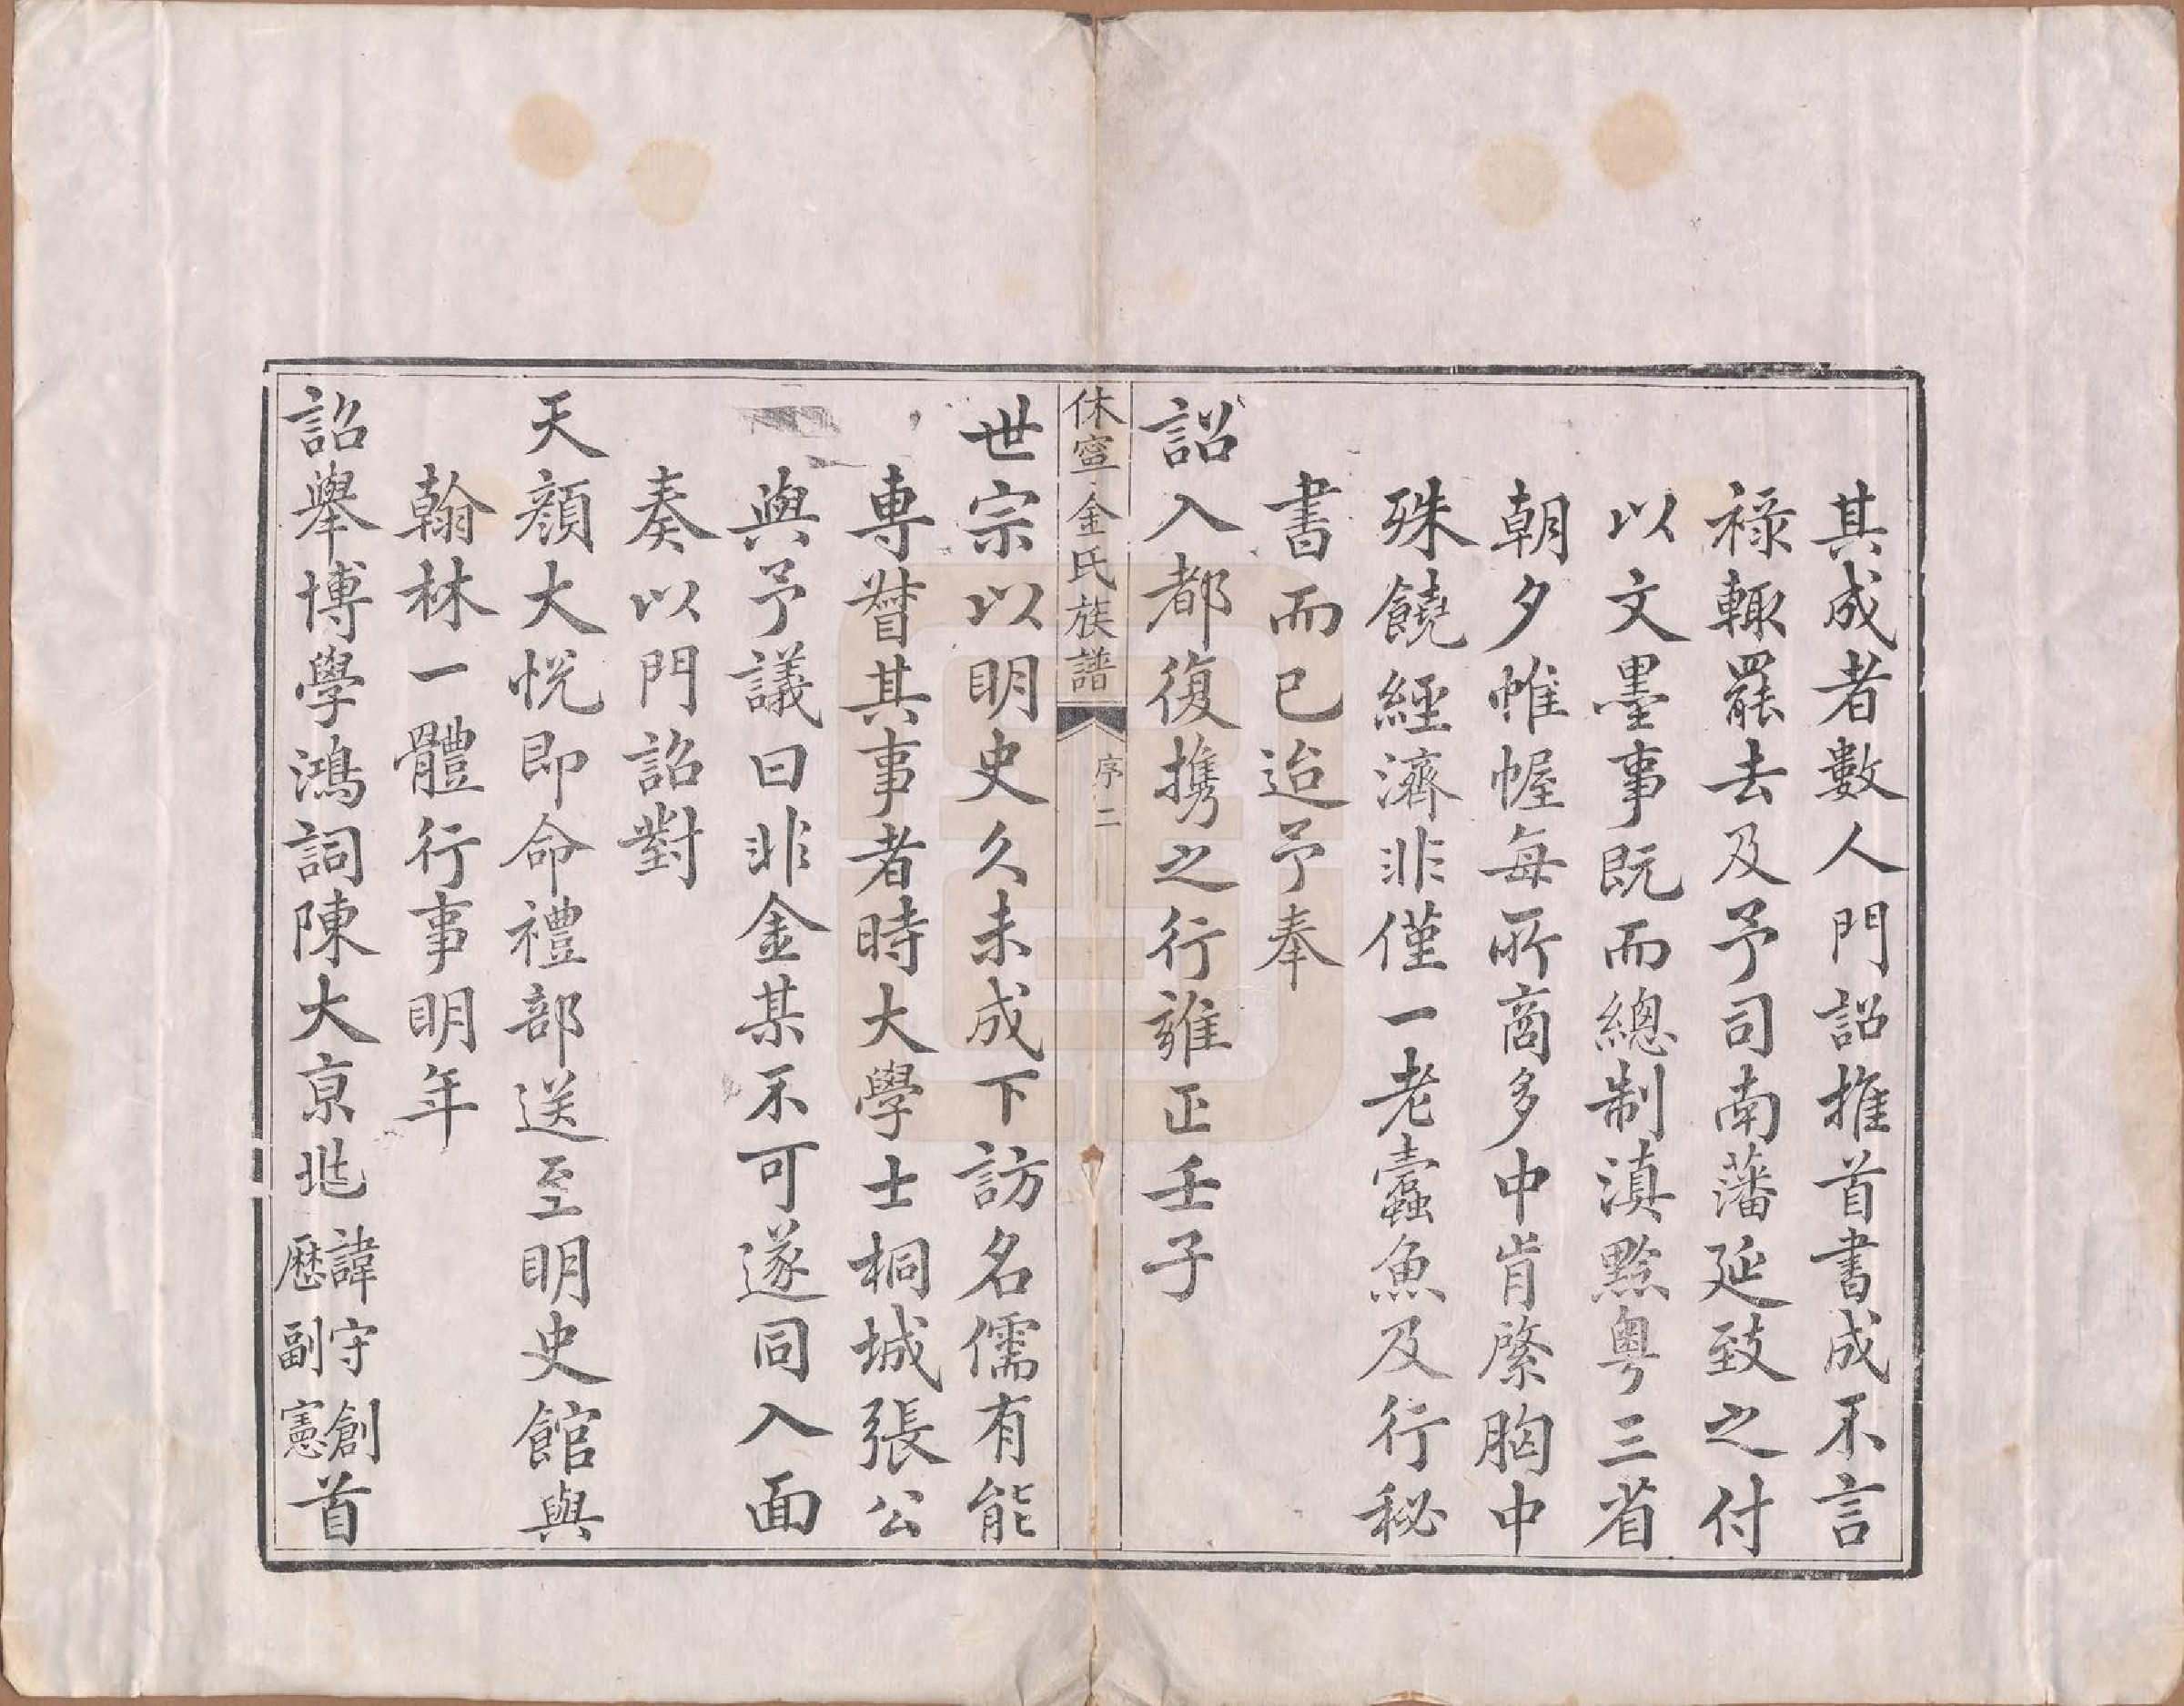 其成者數人門詔推首書成不言
祿輙罷去及予司南藩延致之付
以文墨事既而總制滇黔粤三省
朝夕帷幄每所商多中肯綮胸中
殊饒經濟非僅一老蠧魚及行秘
書而已迨予奉
詔入都復携之行雍正壬子
休寜金氏族譜
序二
世宗以明史久未成下訪名儒有能
專督其事者時大學士桐城張公
與予議曰非金某不可遂同入面
奏以門詔對
天顔大悦即命禮部送至明史館與
翰林一體行事明年
詔舉博學鴻詞陳大京兆諱守創歴副憲首